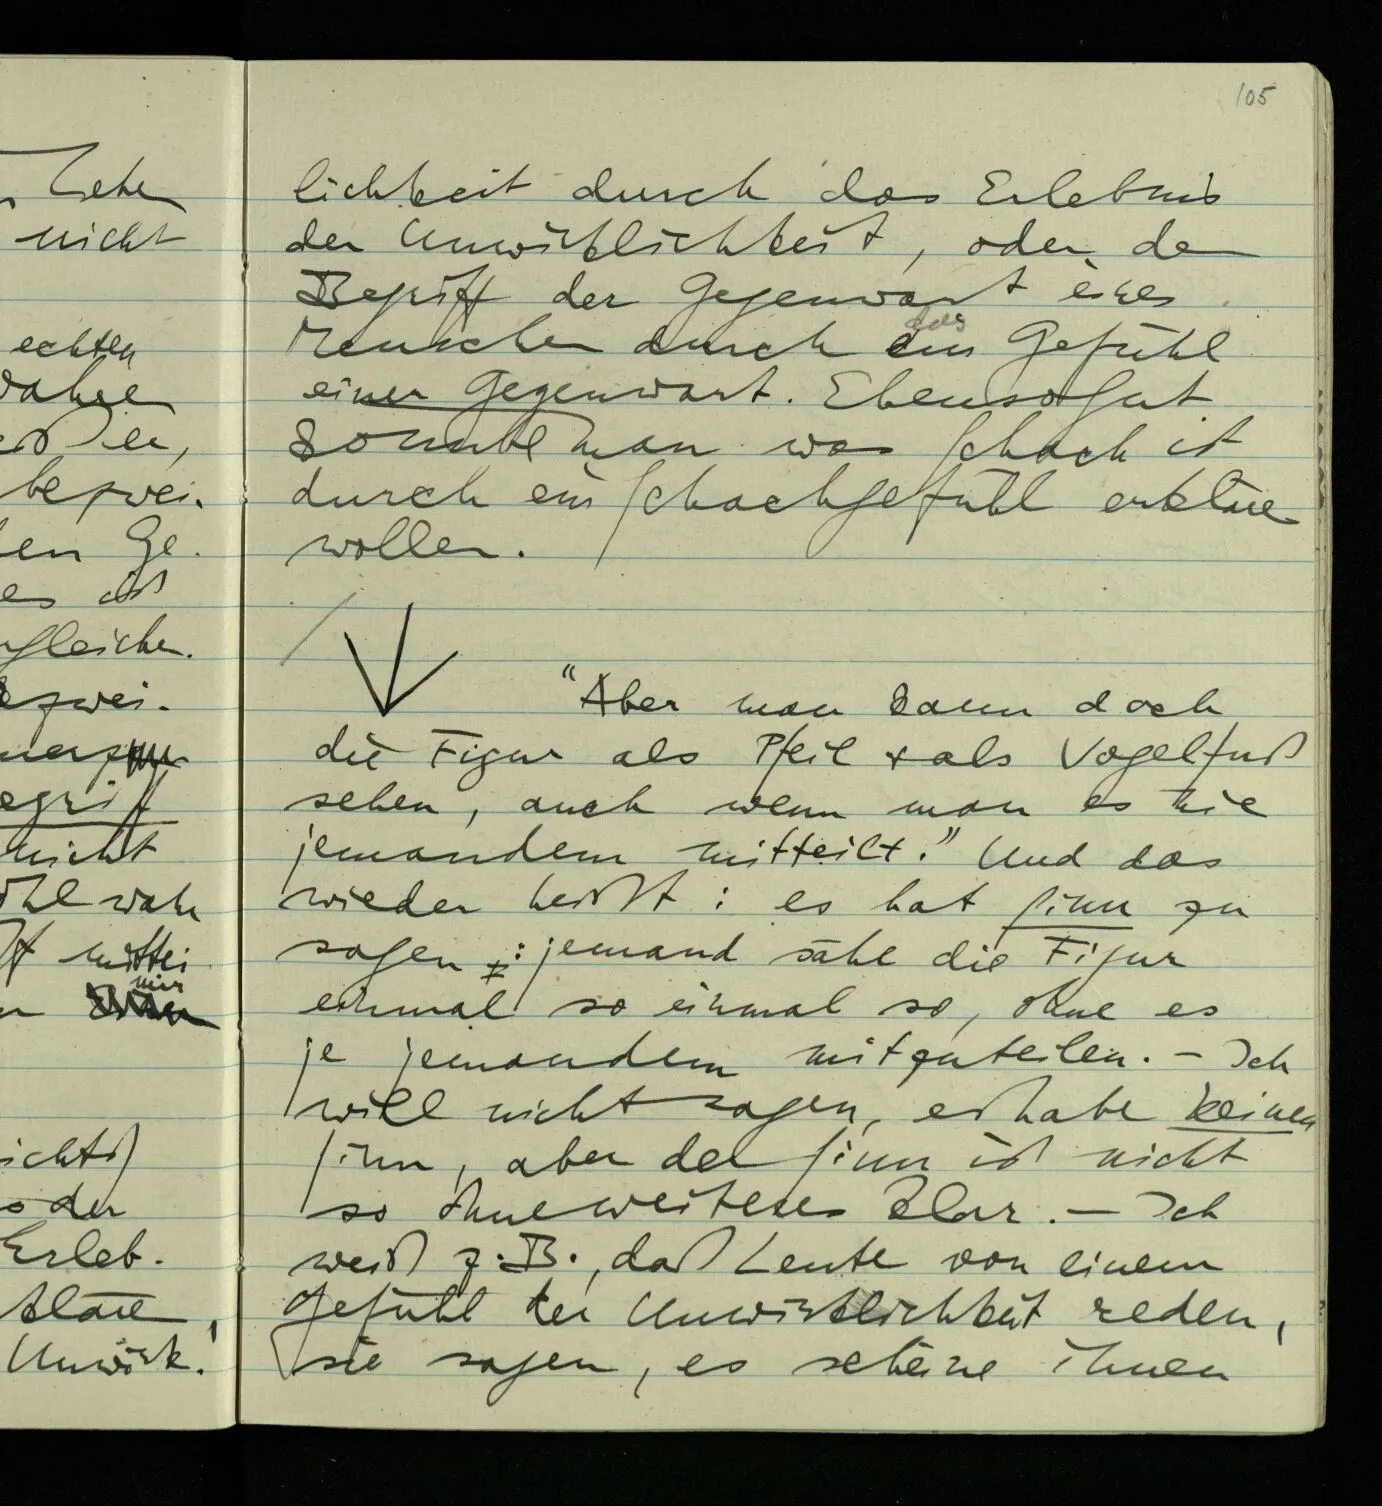 105
Lehr
nicht
echten
er,
bezwei-
en Ge-
es ist
gleichen.
zwei-
egriff
nicht
ohl wahr
mittei
mir
nichts
oder
Erleb-
kläre,
Unwirk-
lichkeit durch das Erlebnis
der Unwirklichkeit, oder den
Begriff der Gegenwart eines
das
Menschen durch ein Gefühl
einer Gegenwart. Ebensogut
könnte man was Schach ist
durch ein Schachgefühl erklären
wollen.
"Aber man kann doch
die Figur als Pfeil + als Vogelfuß
sehen, auch wenn man es nie
jemandem mitteilt." Und das
wieder heißt: es hat Sinn zu
sagen: jemand sähe die Figur
einmal so einmal so, ohne es
je jemandem mitzuteilen. – Ich
will nicht sagen, es habe keinen
Sinn, aber der Sinn ist nicht
so ohneweiteres klar. – Ich
weiß z.B., daß Leute von einem
Gefühl der Unwirklichkeit reden,
sie sagen, es scheine ihnen